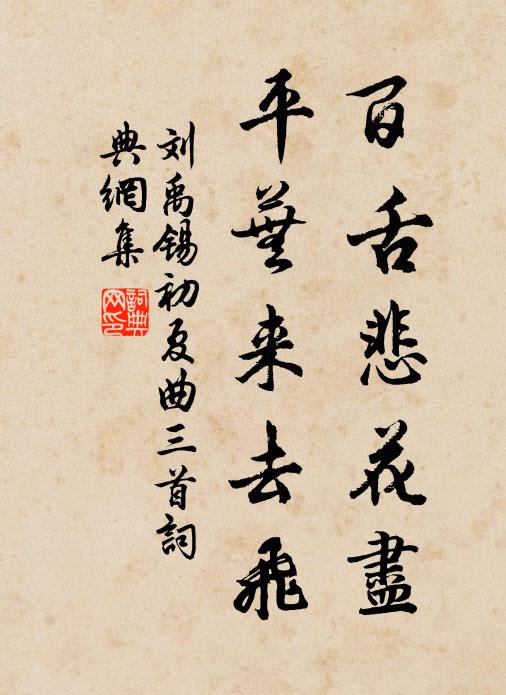 百舌悲花盡
平蕪来去飛
刘禹锡初夏曲三首詞
典網集
詞典网印